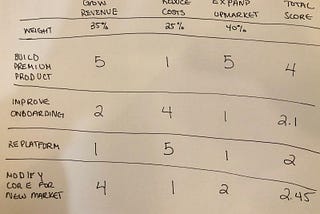 GROW REDUCE EXPAND TOTAL
REVENUE COSTS UPMARKET SCORE
WEIGHT 35% 25% 40%
BUILD
PREMIUM 5 1 5 4
PRODUCT
IMPROVE
ONBOARDING 2 4 1 2.1
REPLATFORM 1 5 1 2
MODIFY
CORE FOR 4 1 2 2.45
NEW MARKET